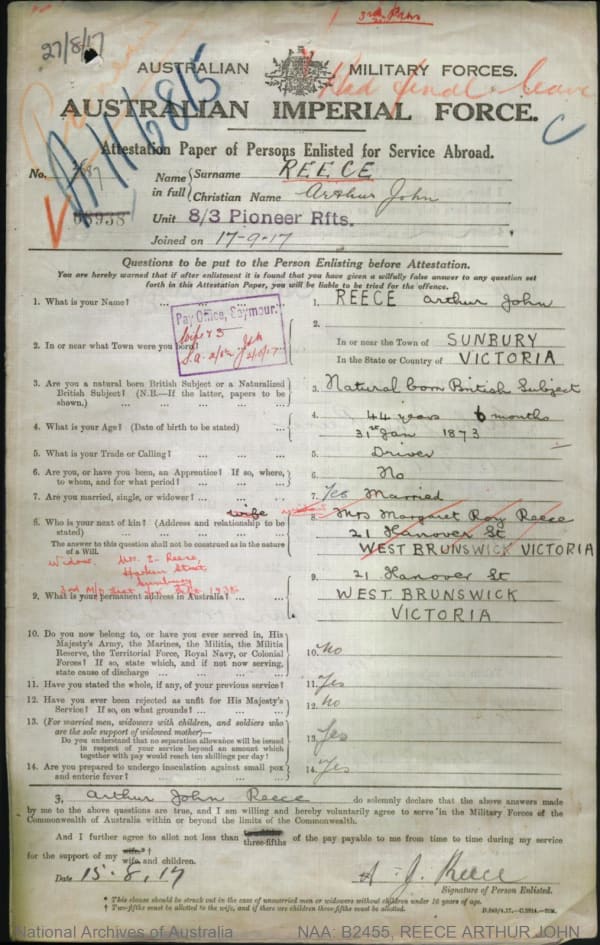 3rd Paps
27/8/17
AUSTRALIAN MILITARY FORCES.
Had final leave
AUSTRALIAN IMPERIAL FORCE.
Attestation Paper of Persons Enlisted for Service Abroad.
No.
Name in full
Surname REECE
Christian Name Arthur John
Unit 8/3 Pioneer Rfts.
Joined on 17-9-17
Questions to be put to the Person Enlisting before Attestation.
You are hereby warned that if after enlistment it is found that you have given a wilfully false answer to any question set
forth in this Attestation Paper, you will be liable to be tried for the offence.
1. What is your Name? ... 1. REECE Arthur John
Pay Office, Seymour.
2. In or near what Town were you born? 2. In or near the Town of SUNBURY
In the State or Country of VICTORIA
3. Are you a natural born British Subject or a Naturalized
British Subject? (N.B.—If the latter, papers to be
shown.) ... 3. Natural born British Subject
4. What is your Age? (Date of birth to be stated) ... 4. 44 years 6 months
31st Jan 1873
5. What is your Trade or Calling? ... 5. Driver
6. Are you, or have you been, an Apprentice? If so, where,
to whom, and for what period? ... 6. No
7. Are you married, single, or widower? ... 7. Yes Married
wife
8. Who is your next of kin? (Address and relationship to be
stated) ... 8. Mrs Margaret Roy Reece
21 Hanover St
WEST BRUNSWICK VICTORIA
The answer to this question shall not be construed as in the nature
of a Will.
Widow. Mrs. E. Reece,
Street
Sunbury
9. What is your permanent address in Australia? ... 9. 21 Hanover St
WEST BRUNSWICK
VICTORIA
10. Do you now belong to, or have you ever served in, His
Majesty's Army, the Marines, the Militia, the Militia
Reserve, the Territorial Force, Royal Navy, or Colonial
Forces? If so, state which, and if not now serving,
state cause of discharge ... 10. No
11. Have you stated the whole, if any, of your previous service? 11. Yes
12. Have you ever been rejected as unfit for His Majesty's
Service? If so, on what grounds? ... 12. No
13. (For married men, widowers with children, and soldiers who
are the sole support of widowed mother)—
Do you understand that no separation allowance will be issued
in respect of your service beyond an amount which
together with pay would reach ten shillings per day? 13. Yes
14. Are you prepared to undergo inoculation against small pox
and enteric fever? ... 14. Yes
I, Arthur John Reece do solemnly declare that the above answers made
by me to the above questions are true, and I am willing and hereby voluntarily agree to serve in the Military Forces of the
Commonwealth of Australia within or beyond the limits of the Commonwealth.
And I further agree to allot not less than three-fifths of the pay payable to me from time to time during my service
for the support of my wife and children.
Date 15.8.17
A. J. Reece
Signature of Person Enlisted.
* This clause should be struck out in the case of unmarried men or widowers without children under 16 years of age.
† Two-fifths must be allotted to the wife, and if there are children three-fifths must be allotted.
National Archives of Australia NAA: B2455, REECE ARTHUR JOHN